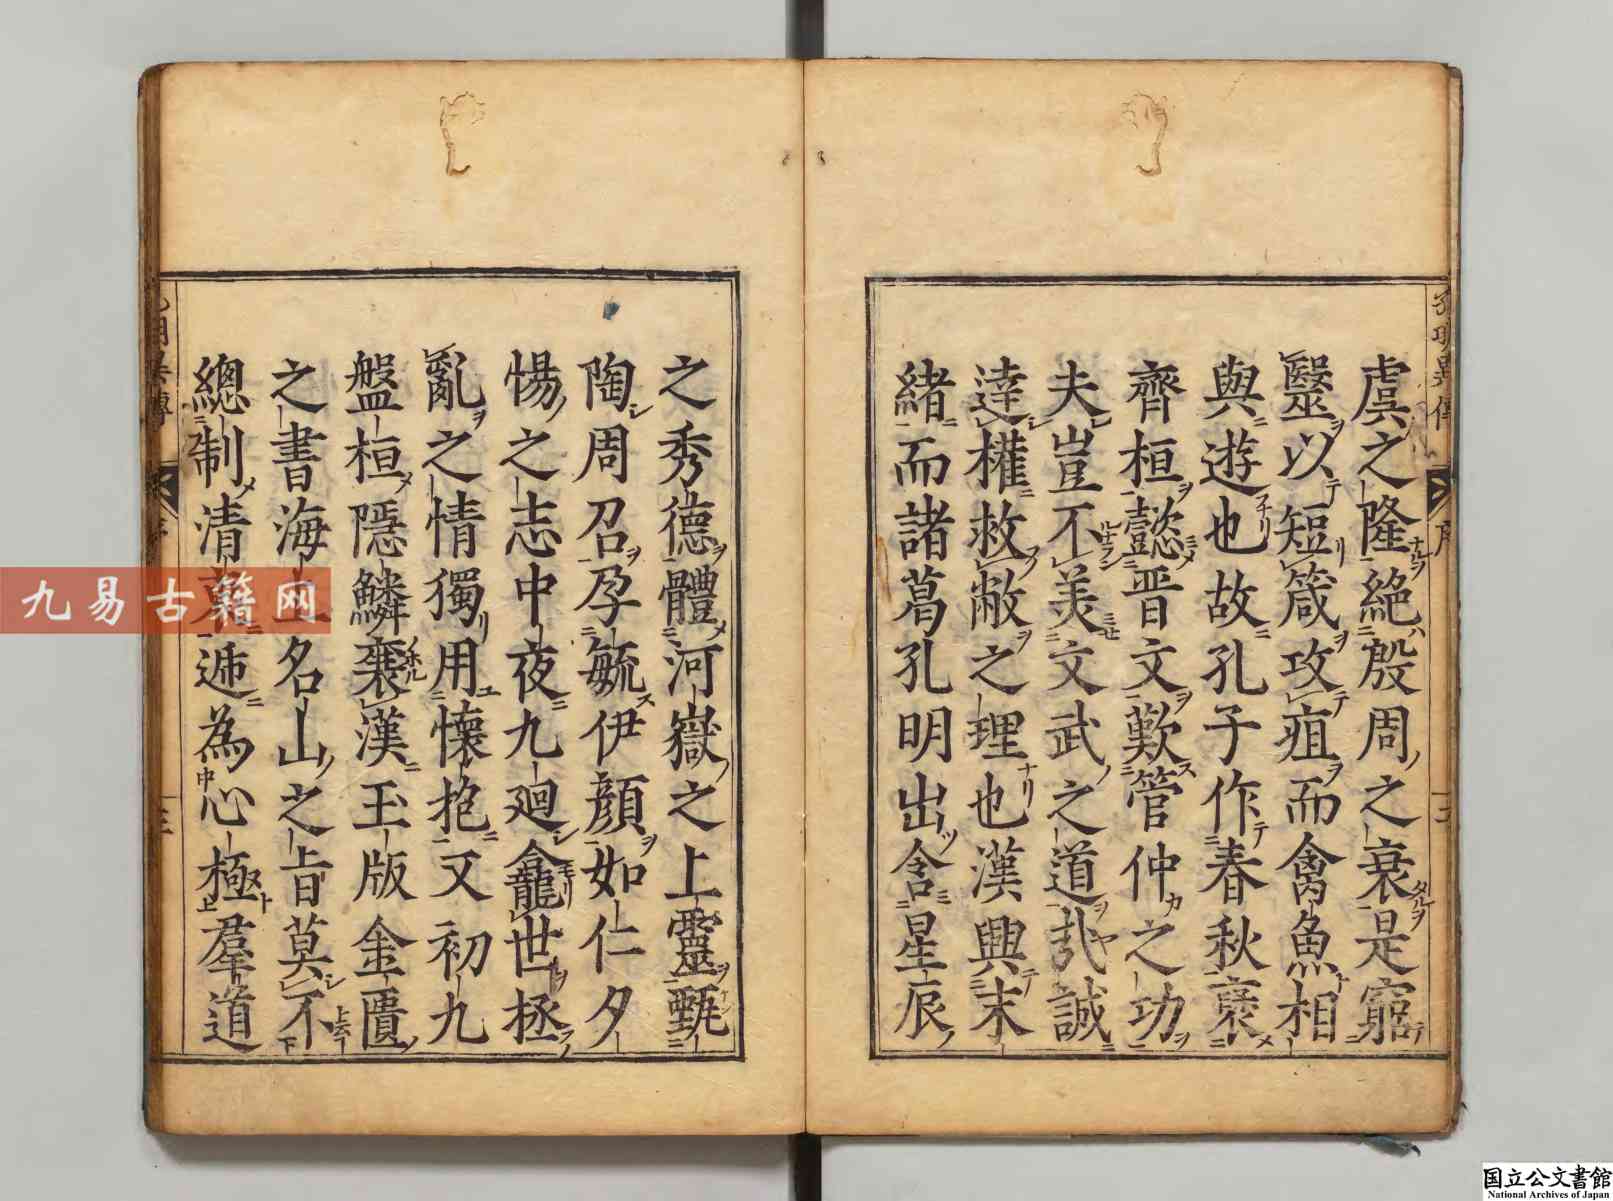 虞之隆絶殷周之衰是窮
毉以短箴攻疽而禽魚相
與遊也故孔子作春秋褒
齊桓懿晋文歎管仲之功
夫豈不美文武之道哉誠
達權救敝之理也漢興末
緒而諸葛孔明出含星辰
之秀德體河嶽之上靈甄
陶周召孕毓伊顔如仁夕
惕之志中夜九廻龕世拯
亂之情獨用懷抱又初九
盤桓隱鱗棄漢玉版金匱
之書海上名山之旨莫不
總制清衷遞為心極羣道
孔明異傳
序
三
九易古籍网
国立公文書館
National Archives of Japan